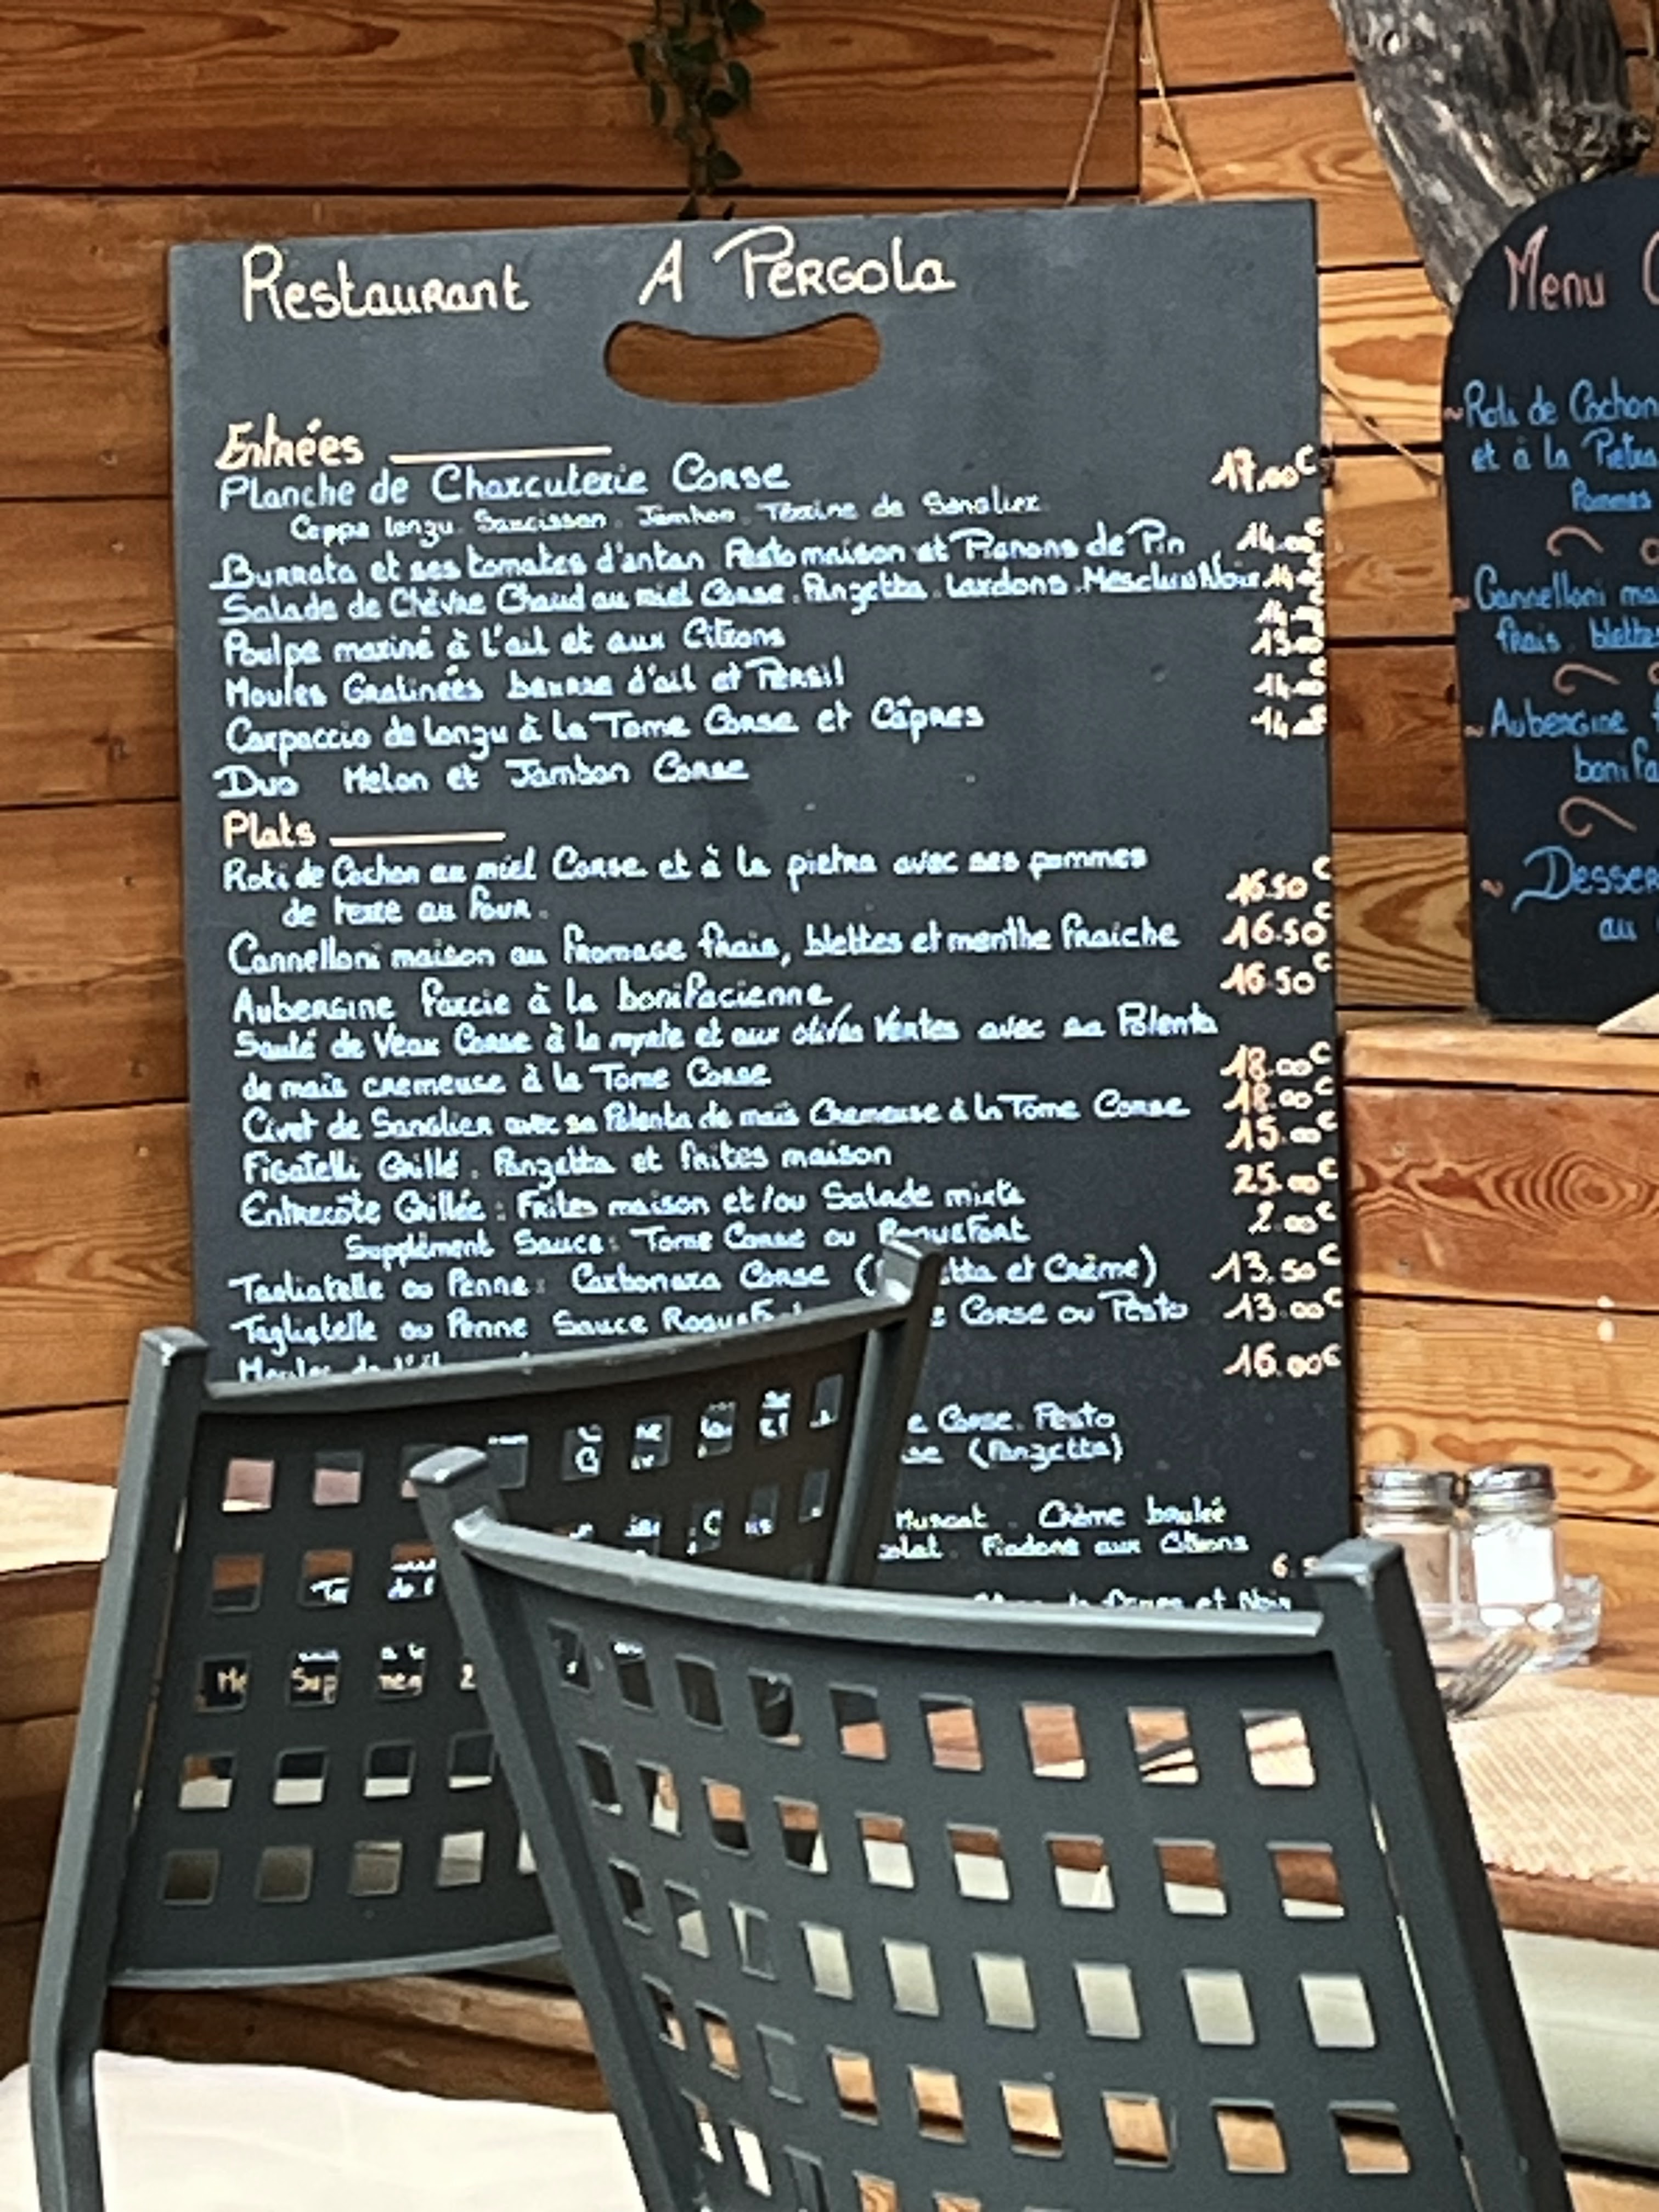 Restaurant A Pergola
Entrées
Planche de Charcuterie Corse 17,00€
Coppa lonzu. Saucisson. Jambon. Terrine de Sanglier
Burrata et ses tomates d'antan Pesto maison et Pignons de Pin 14.00€
Salade de Chèvre Chaud au miel Corse. Panzetta. Lardons. Mesclun Noix 14€
Poulpe mariné à l'ail et aux Citrons
Moules Gratinées beurre d'ail et Persil 13.00
Carpaccio de lonzu à la Tome Corse et Câpres 14.00€
Duo Melon et Jambon Corse 14.00€
Plats
Roti de Cochon au miel Corse et à la pietra avec ses pommes
de terre au four. 16.50€
Cannelloni maison au fromage frais, blettes et menthe fraiche 16.50€
Aubergine farcie à la bonifacienne 16.50€
Sauté de Veau Corse à la myrte et aux olives Vertes avec sa Polenta
de maïs cremeuse à la Tome Corse 18.00€
Civet de Sanglier avec sa Polenta de maïs Cremeuse à la Tome Corse 18.00€
Figatelli Grillé. Panzetta et frites maison 15.00€
Entrecôte Grillée: Frites maison et/ou Salade mixte 25.00€
Supplément Sauce: Tome Corse ou Roquefort 2.00€
Tagliatelle ou Penne: Carbonara Corse ( et Crème) 13.50€
Tagliatelle ou Penne Sauce Corse ou Pesto 13.00€
Moules de 16.00€
Corse. Pesto
(Panzetta)
Muscat. Crème brulée
Fiadone aux Citrons
6.5
et Noix
Menu
~Roti de Cochon
et à la Pietra
Pommes
~Cannelloni
frais. blettes
~Aubergine
~Dessert
au